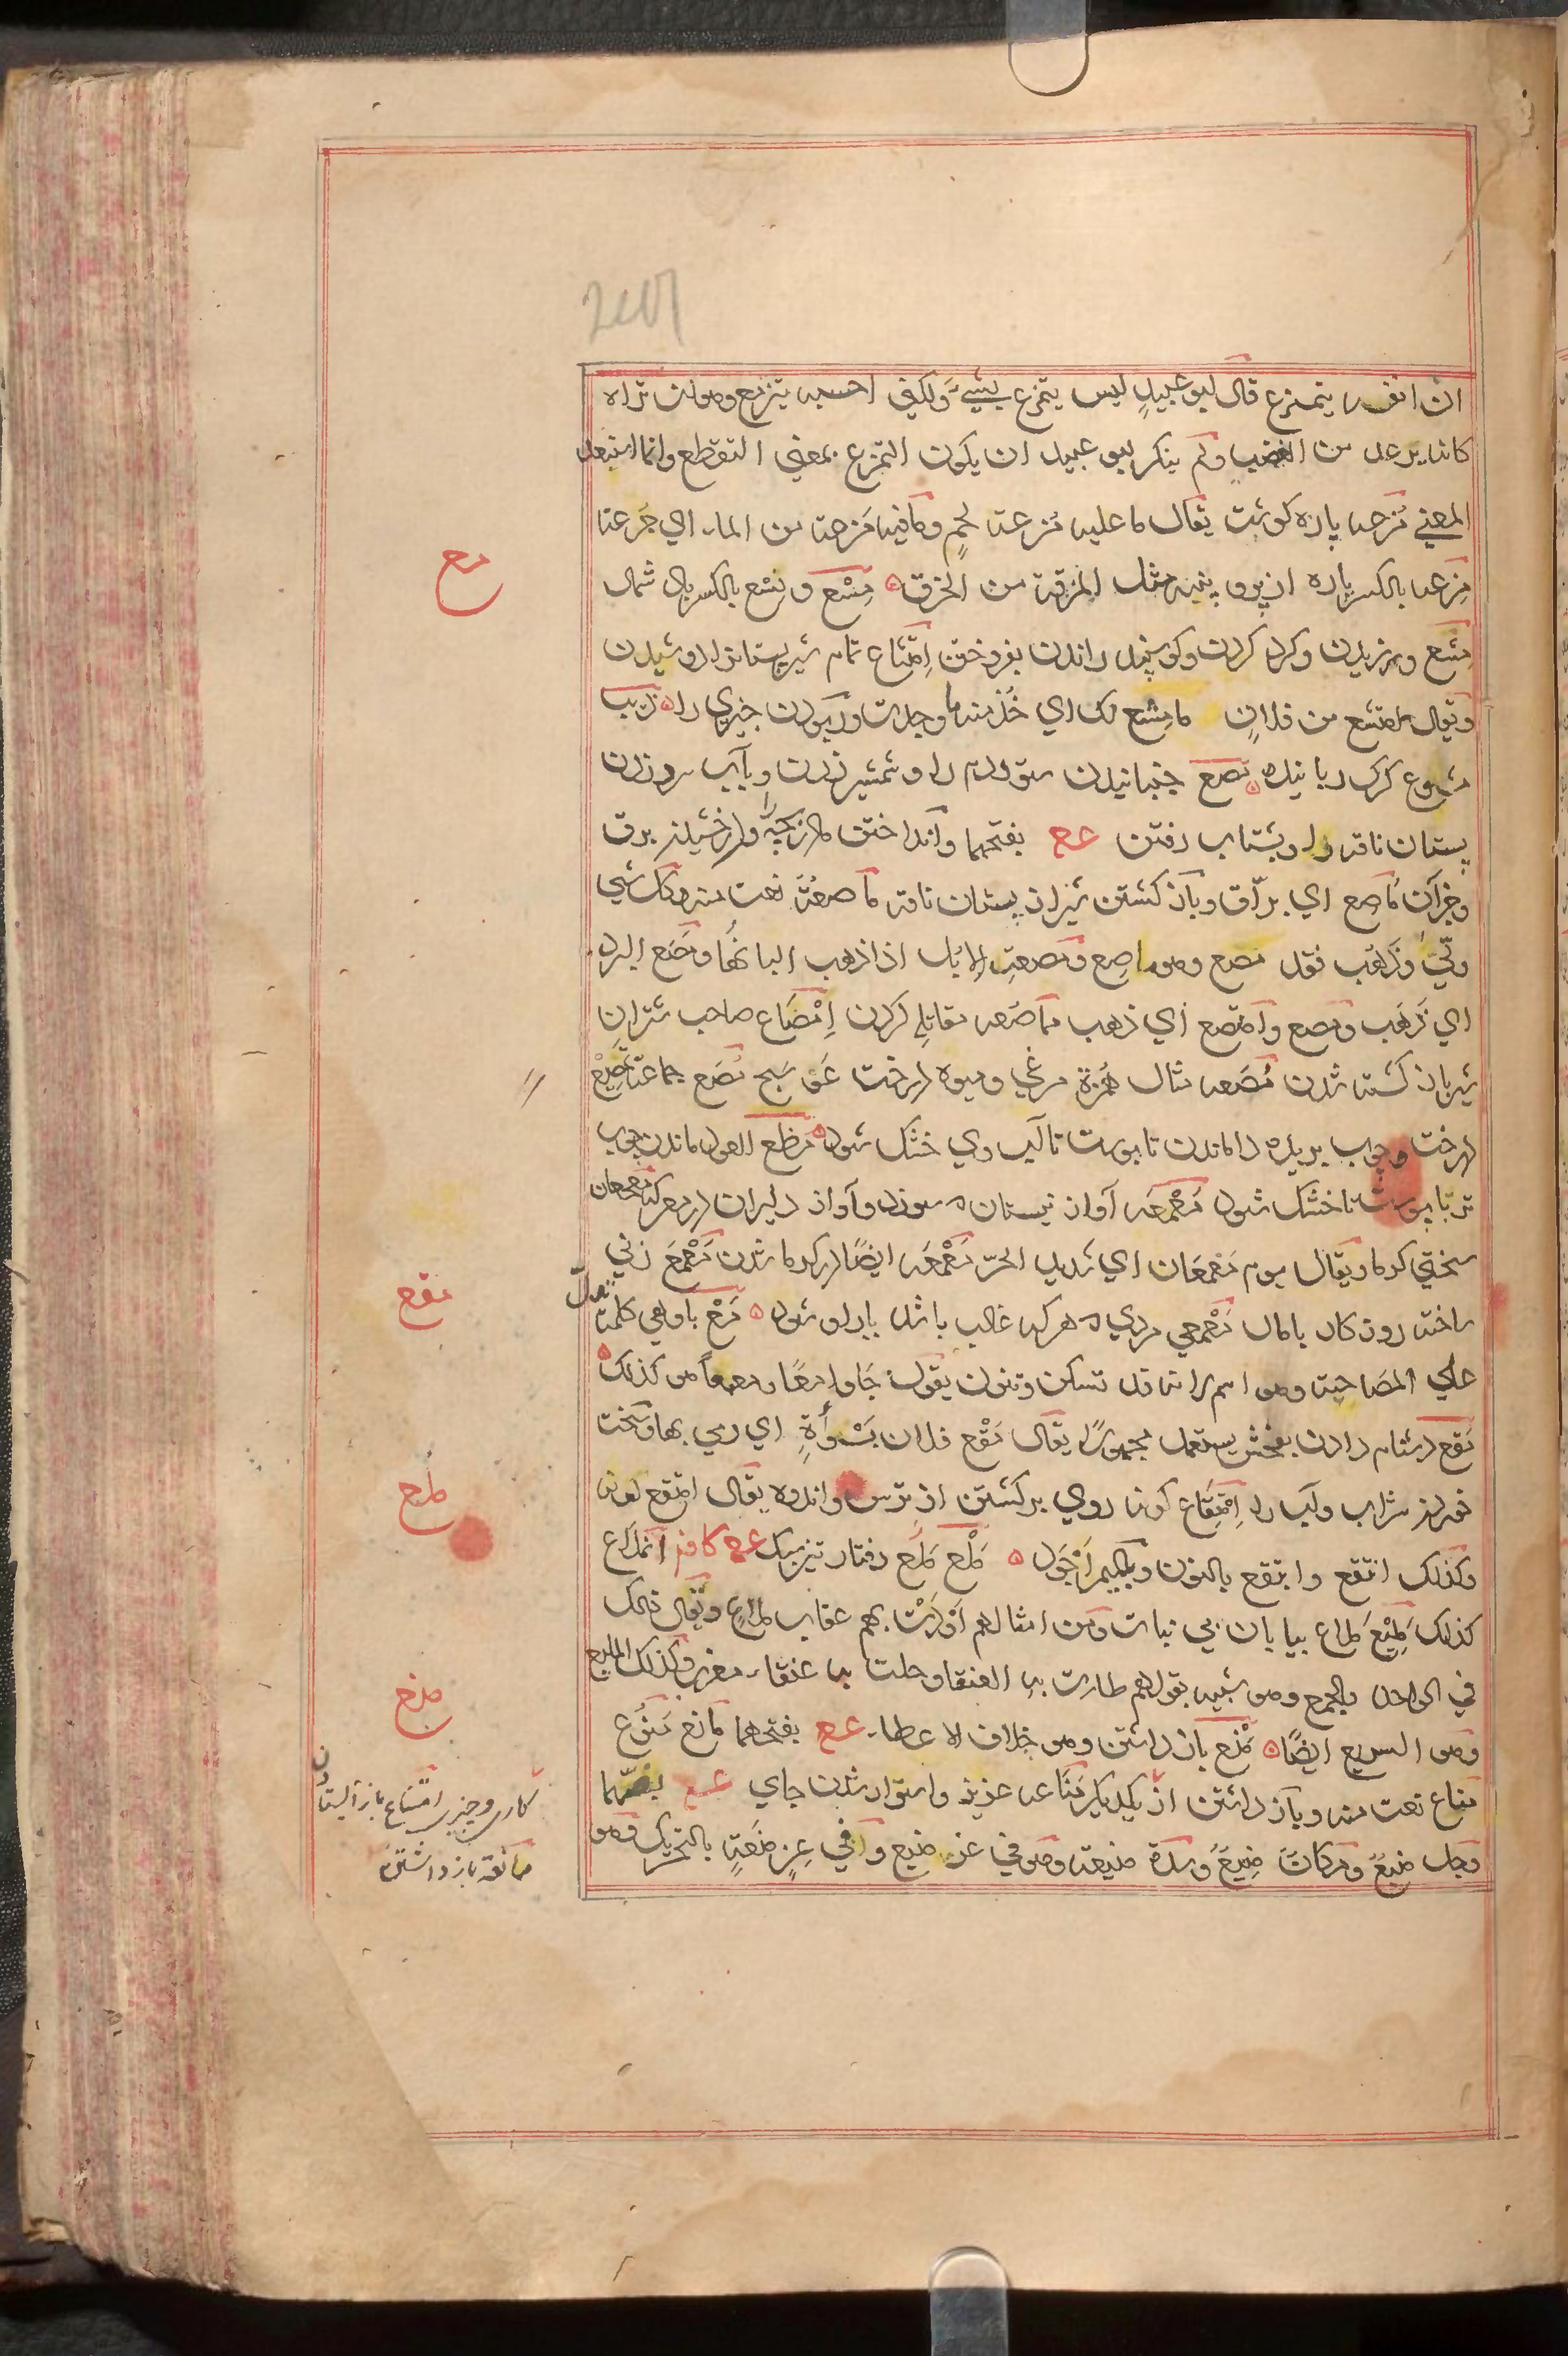 ان انفه یتمزع قال ابو عبید لیس یتمزع بشیء ولکنی احسبه یترمع وهو ان تراه
کانه یرعد من الغضب ولم ینکر ابو عبید ان یکون التمزع بمعنی التقطع وانما استبعد
المعنی مُزعه پاره کوشت یقال ما علیه مُزعة لحمٍ وما فیه مُزعة من الماء ای جُرعة
مِزعه بالکسر پاره از پر و پنبه مثل المزقة من الخرق مِسْع و نِسْع بالکسر باد شمال
مشع ورزیدن وکرد کردن وکوسپند راندن بفروختن اِمتشاع تمام شیر پستانرا دوشیدن
ویقال امتشع من فلان ما مشع لک ای خُذ منه ما وجدت وربودن چیزی را ذئب
مشوع کرک رباینده مصع جنبانیدن ستور دم را و شمشیر زدن وبآب سرد زدن
پستان ناقه را وبشتاب رفتن عع بفتحهما وانداختن مادر بچه را ودرخشیدن برق
وجز آن ماصع ای برّاق وباز کشتن شیر از پستان ناقه ماصعة نعت منه وکل شی
ولّی وذهب فقد مصع وهو ماصع ومصعت الابل اذا ذهب البانها ومصع البرد
ای ذهب ومصع وامتصع ای ذهب مماصعه مقاتله کردن اِمْصَاع صاحب شتران
شیر باز کشته شدن مُصَعه مثال هُمزة مرغی ومیوه درخت عوسج مُصَع جماعة تمصیع
درخت وچوب بریده را ماندن تا پوست تا آب وی خشک شود مظع العود ماندن چوب
تر با پوست تا خشک شود مَعْمَعَه آواز نیستان سوزد وآواز دلیران در معرکه معمعان
سختی کرما ویقال یوم مَعْمَعَان ای شدید الحرّ مَعْمَعَه ایضًا در کرما شدن مَعْمَع زنی
ساخته روزکار با مال مَعْمَعی مردی هر که غالب باشد یار او شود مَعْ با وهی کلمة تدلّ
علی المصاحبة وهو اسم لانه قد تسکن وتنون یقول جاوا معًا وهما معًا کذلک
مَقع دشنام دادن بفحش یستعمل مجهولًا یقال مُقِع فلان بسَوْأةٍ ای رمی بها وسخت
خوردن شراب وآب را اِمتِقَاع کونه روی بر کشتن از ترس واندوه یقال امتقع لونه
وکذلک انتقع وابتقع بالنون وبالمیم اَجْوَد مَلْع مَلْع رفتار تیز سبک عع کافه انملاع
کذلک مَلِیْع مَلاع بیابان بی نبات ومن امثالهم اَوْدَتْ بهم عقاب ملاع ویقال ذلک
فی الواحد والجمع وهو شبیه بقولهم طارت به العنقا وحلت به عنقاء مغرب وکذلک الملیع
وهو السریع ایضًا مَنْع باز داشتن وهو خلاف الاعطاء عع بفتحهما مانع مَنُوع
مناع نعت منه وباز داشتن از یکدیکر مَنَاعه عزیز واستوار شدن جای عع بضمّهما
رجل منیع ومکان منیع وبلدة منیعة وهو فی عز منیع وفی عزٍ ومَنَعةٍ بالتحریک وهو
مع
مقع
ملع
منع
کاری وچیزی امتناع باز ایستادن
ممانعة باز داشتن